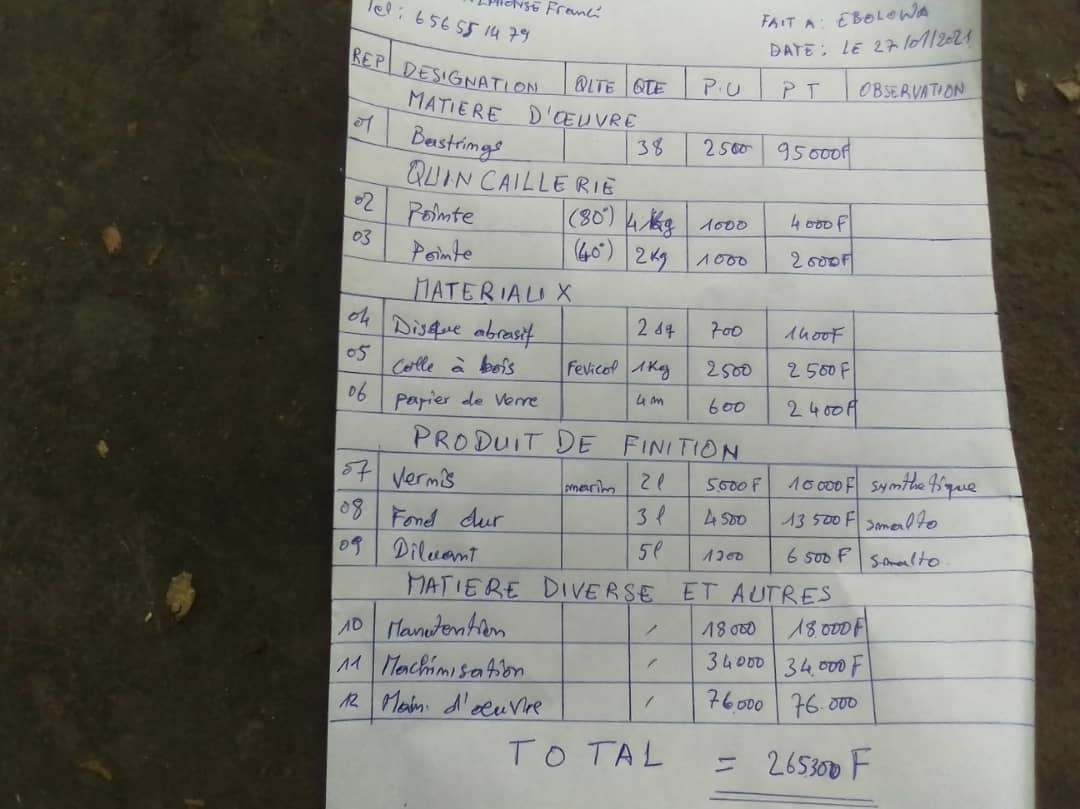 Tel: 656 55 14 79
FAIT A: EBOLOWA
DATE: LE 27/01/2021
REP DESIGNATION QLTE QTE P.U P T OBSERVATION
MATIERE D'ŒUVRE
01 Bastrings 38 2500 95000F
QUINCAILLERIE
02 Pointe (80°) 4 kg 1000 4000F
03 Pointe (40°) 2Kg 1000 2000F
MATERIAUX
04 Disque abrasif 2 700 1400F
05 Colle à bois Fevicol 1Kg 2500 2500F
06 papier de verre 4m 600 2400F
PRODUIT DE FINITION
07 Vernis marin 2l 5000F 10000F synthetique
08 Fond dur 3l 4500 13500F smalto
09 Diluant 5l 1300 6500F smalto
MATIERE DIVERSE ET AUTRES
10 Manutention / 18000 18.000F
11 Machinisation / 34000 34.000F
12 Main d'œuvre / 76.000 76.000
TOTAL = 265300 F